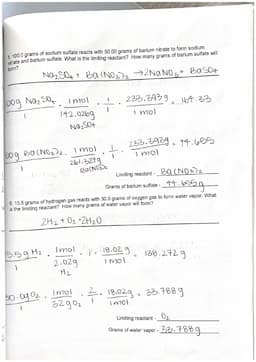 5. 100.0 grams of sodium sulfate reacts with 50.00 grams of barium nitrate to form sodium
nitrate and barium sulfate. What is the limiting reactant? How many grams of barium sulfate will
form?
Na₂SO₄ + Ba(NO₃)₂ → 2NaNO₃ + BaSO₄
00g Na₂SO₄ · 1mol · 1 · 233.393g = 164.33
1 142.026g 1 1 mol
Na₂SO₄
00g Ba(NO₃)₂ · 1 mol · 1 · 233.393g = 44.655
1 261.329g 1 1 mol
Ba(NO₃)₂
Limiting reactant - Ba(NO₃)₂
Grams of barium sulfate - 44.655g
6. 15.5 grams of hydrogen gas reacts with 30.0 grams of oxygen gas to form water vapor. What
is the limiting reactant? How many grams of water vapor will form?
2H₂ + O₂ → 2H₂O
5.5g H₂ · 1mol · 1 · 18.02g = 138.272g
1 2.02g 1 mol
H₂
30.0g O₂ · 1mol · 2 · 18.02g = 33.788g
1 32g O₂ 1 1mol
Limiting reactant - O₂
Grams of water vapor - 33.788g